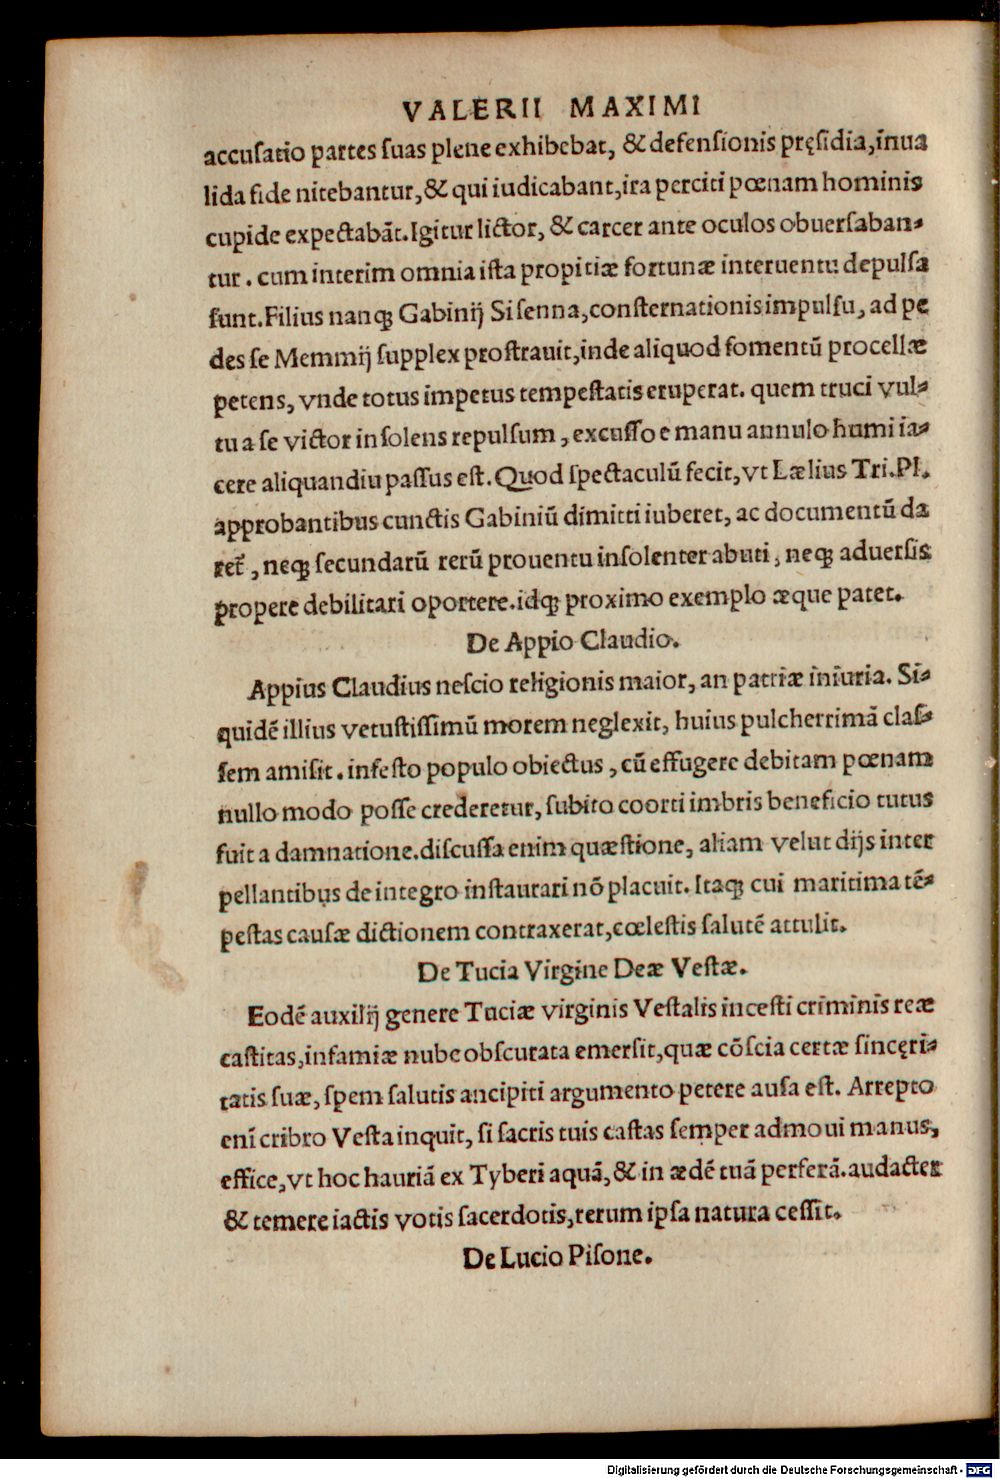 VALERII MAXIMI
accusatio partes suas plene exhibebat, & defensionis pręsidia, inua
lida fide nitebantur, & qui iudicabant, ira perciti pœnam hominis
cupide expectabāt. Igitur lictor, & carcer ante oculos obuersaban-
tur. cum interim omnia ista propitiæ fortunæ interuentu depulsa
sunt. Filius nanq; Gabinij Sisenna, consternationis impulsu, ad pe
des se Memmij supplex prostrauit, inde aliquod fomentū procellæ
petens, vnde totus impetus tempestatis eruperat. quem truci vul-
tu a se victor insolens repulsum, excusso e manu annulo humi ia-
cere aliquandiu passus est. Quod spectaculū fecit, vt Lælius Tri. Pl.
approbantibus cunctis Gabiniū dimitti iuberet, ac documentū da
ret̄, neq; secundarū rerū prouentu insolenter abuti, neq; aduersis
propere debilitari oportere. idq; proximo exemplo æque patet.
De Appio Claudio.
Appius Claudius nescio religionis maior, an patriæ iniuria. Si-
quidē illius vetustissimū morem neglexit, huius pulcherrimā clas-
sem amisit. infesto populo obiectus, cū effugere debitam pœnam
nullo modo posse crederetur, subito coorti imbris beneficio tutus
fuit a damnatione. discussa enim quæstione, aliam velut dijs inter
pellantibus de integro instaurari nō placuit. Itaq; cui maritima tē-
pestas causæ dictionem contraxerat, cœlestis salutē attulit.
De Tucia Virgine Deæ Vestæ.
Eodē auxilij genere Tuciæ virginis Vestalis incesti criminis reæ
castitas, infamiæ nube obscurata emersit, quæ cōscia certæ sincęri-
tatis suæ, spem salutis ancipiti argumento petere ausa est. Arrepto
enī cribro Vesta inquit, si sacris tuis castas semper admoui manus,
effice, vt hoc hauriā ex Tyberi aquā, & in ædē tuā perferā. audacter
& temere iactis votis sacerdotis, rerum ipsa natura cessit.
De Lucio Pisone.
Digitalisierung gefördert durch die Deutsche Forschungsgemeinschaft - DFG